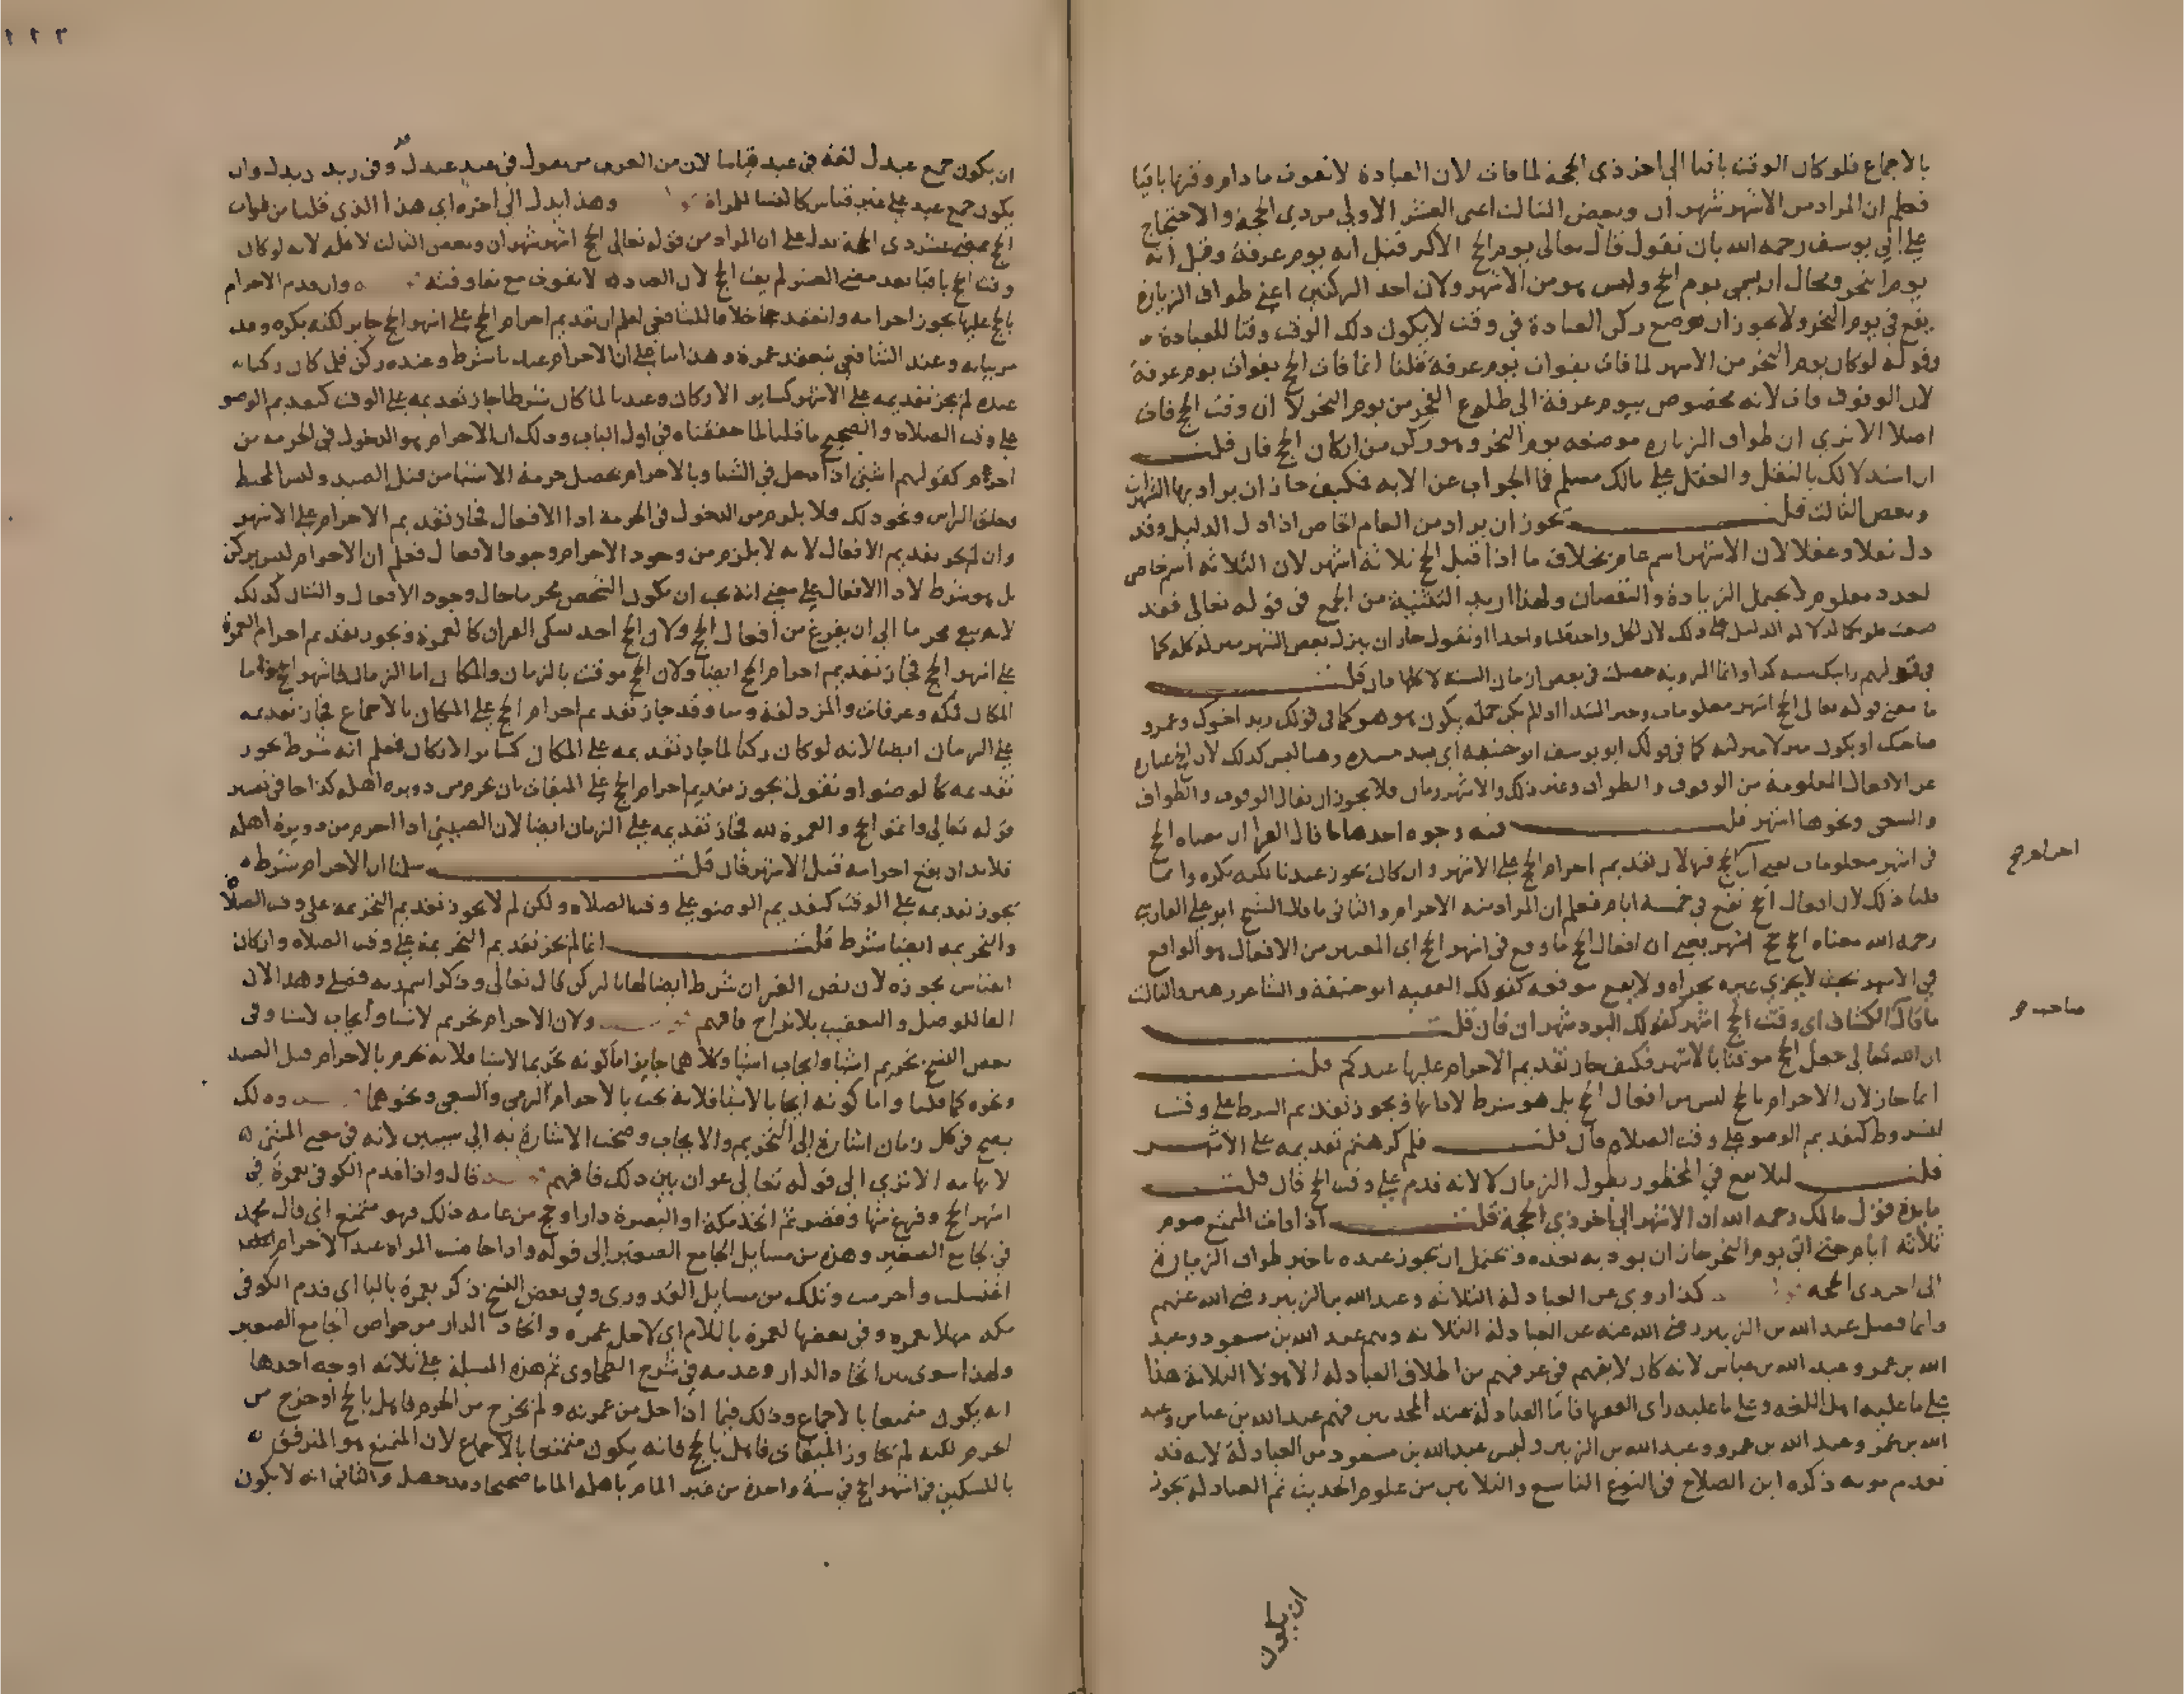 بالاجماع فلو كان الوقت باقيا الى اخر ذي الحجة لما فات لان العبادة لا تفوت ما دام وقتها باقيا
فعلم ان المراد من الاشهر شهران وبعض الثالث اعني العشر الاولى من ذي الحجة والاحتجاج
على ابي يوسف رحمه الله بان نقول قال تعالى يوم الحج الاكبر قيل انه يوم عرفة وقيل انه
يوم النحر ومحال ان يسمى يوم الحج وليس هو من الاشهر ولان احد الركنين اعني طواف الزيارة
يقع في يوم النحر ولا يجوز ان يوضع ركن العبادة في وقت لا يكون ذلك الوقت وقتا للعبادة
وقوله لو كان يوم النحر من الاشهر لما فات بفوات يوم عرفة قلنا انما فات الحج بفوات يوم عرفة
لان الوقوف فات لانه مخصوص بيوم عرفة الى طلوع الفجر من يوم النحر لا ان وقت الحج فات
اصلا الا ترى ان طواف الزيارة موضعه يوم النحر وهو ركن من اركان الحج فان قلت
ان استدلالك بالنقل والعقل على مالك مسلم فما الجواب عن الاية فكيف جاز ان يراد بها الشهران
وبعض الثالث قلت يجوز ان يراد من العام الخاص اذا دل الدليل وقد
دل نقلا وعقلا لان الاشهر اسم عام بخلاف ما اذا قيل الحج ثلاثة اشهر لان الثلاثة اسم خاص
لعدد معلوم لا يحتمل الزيادة والنقصان ولهذا اريد التثنية من الجمع في قوله تعالى فقد
صغت قلوبكما لدلالة الدليل على ذلك لان لكل واحد قلبا واحدا او نقول جاز ان ينزل بعض الشهر منزلة كله كما
في قولهم رايتك سنة كذا وانما الروية حصلت في بعض ازمان السنة لا كلها فان قلت
ما معنى قوله تعالى الحج اشهر معلومات وخبر المبتدا اذا لم يكن جملة يكون هو هو كما في قولك زيد اخوك وعمرو
صاحبك او يكون منزلا منزلته كما في قولك ابو يوسف ابو حنيفة اي يسد مسده وهنا ليس كذلك لان الحج عبارة
عن الافعال المعلومة من الوقوف والطواف وغير ذلك والاشهر زمان فلا يجوز ان يقال الوقوف والطواف
والسعي ونحوها اشهر قلت فيه وجوه احدها ما قال الفرا ان معناه الحج
في اشهر معلومات يعني ان الحج فيها لان تقديم احرام الحج على الاشهر وان كان يجوز عندنا لكنه يكره وانما
قلنا ذلك لان افعال الحج تقع في خمسة ايام فعلم ان المراد منه الاحرام والثاني ما قال الشيخ ابو علي الفارسي
رحمه الله معناه الحج حج اشهر يعني ان افعال الحج ما وقع في اشهر الحج اي المعتبر من الافعال هو الواقع
في الاشهر بحيث لا يجزي غيره مجراه ولا يقع موقعه كقولك الفقيه ابو حنيفة والشاعر زهير والثالث
ما قال الكشاف اي وقت الحج اشهر كقولك البرد شهران فان قلت
ان الله تعالى جعل الحج موقتا بالاشهر فكيف جاز تقديم الاحرام عليها عندكم قلت
انما جاز لان الاحرام بالحج ليس من افعال الحج بل هو شرط لادائها فيجوز تقديم الشرط على وقت
المشروط كتقديم الوضوء على وقت الصلاة فان قلت فلم كرهتم تقديمه على الاشهر
قلت لئلا يقع في المحظور بطول الزمان لا لانه قدم على وقت الحج فان قلت
ما ثمرة قول مالك رحمه الله ان الاشهر الى اخر ذي الحجة قلت اذا فات المتمتع صوم
ثلاثة ايام حتى اتى يوم النحر جاز ان يوديه بعده ويحتمل ان يجوز عنده تاخير طواف الزيارة
الى اخر ذي الحجة كذا روي عن العبادلة الثلاثة وعبد الله بن الزبير رضي الله عنهم
وانما فصل عبد الله بن الزبير رضي الله عنه عن العبادلة الثلاثة وهم عبد الله بن مسعود وعبد
الله بن عمر وعبد الله بن عباس لانه كان لا يفهم في عرفهم من اطلاق العبادلة الا هولا الثلاثة هذا
على ما عليه اهل اللغة وعلى ما عليه راي الفقها فاما العبادلة عند المحدثين فهم عبد الله بن عباس وعبد
الله بن عمر وعبد الله بن عمرو وعبد الله بن الزبير وليس عبد الله بن مسعود من العبادلة لانه قد
تقدم موته ذكره ابن الصلاح في النوع التاسع والثلاثين من علوم الحديث ثم العبادلة يجوز
احرام حج
صاحب
ان يكون
١١٢
ان يكون جمع عبدل لغة في عبد قياسا لان من العرب من يقول في عبد عبدل وفي زيد زيدل وان
يكون جمع عبد على غير قياس كالنسا للمراة وهذا يدل الى اخره اي هذا الذي قلنا من فوات
الحج بمضي عشر ذي الحجة يدل على ان المراد من قوله تعالى الحج اشهر شهران وبعض الثالث لا كله لانه لو كان
وقت الحج باقيا بعد مضي العشر لم يفت الحج لان العبادة لا تفوت مع بقا وقته وان قدم الاحرام
بالحج عليها يجوز احرامه وانعقد حجا خلافا للشافعي اعلم ان تقديم احرام الحج على اشهر الحج جايز لكنه يكره وقد
مر بيانه وعند الشافعي ينعقد عمرة وهذا بنا على ان الاحرام عندنا شرط وعنده ركن فلما كان ركنا
عنده لم يجز تقديمه على الاشهر كساير الاركان وعندنا لما كان شرطا جاز تقديمه على الوقت كتقديم الوضو
على وقت الصلاة والصحيح ما قلنا لما حققناه في اول الباب وذلك ان الاحرام هو الدخول في الحرمة من
احرم كقولهم اشتى اذا دخل في الشتا وبالاحرام تحصل حرمة الاشيا من قتل الصيد ولبس المخيط
وحلق الراس ونحو ذلك فلا يلزم من الدخول في الحرمة ادا الافعال فجاز تقديم الاحرام على الاشهر
وان لم يجز تقديم الافعال لانه لا يلزم من وجود الاحرام وجود الافعال فعلم ان الاحرام ليس بركن
بل هو شرط لادا الافعال على معنى انه يجب ان يكون الشخص محرما حال وجود الافعال والشان كذلك
لانه يبقى محرما الى ان يفرغ من افعال الحج ولان الحج احد نسكي القران كالعمرة فيجوز تقديم احرام العمرة
على اشهر الحج فجاز تقديم احرام الحج ايضا ولان الحج موقت بالزمان والمكان اما الزمان فاشهر الحج واما
المكان فمكة وعرفات والمزدلفة ومنا وقد جاز تقديم احرام الحج على المكان بالاجماع فجاز تقديمه
على الزمان ايضا لانه لو كان ركنا لما جاز تقديمه على المكان كساير الاركان فعلم انه شرط يجوز
تقديمه كالوضو او نقول يجوز تقديم احرام الحج على الميقات بان يحرم من دويرة اهله كذا جا في تفسير
قوله تعالى واتموا الحج والعمرة لله فجاز تقديمه على الزمان ايضا لان الصيني اذا احرم من دويرة اهله
فلا بد ان يقع احرامه قبل الاشهر فان قلت سلمنا ان الاحرام شرط
يجوز تقديمه على الوقت كتقديم الوضو على وقت الصلاة ولكن لم لا يجوز تقديم التحريمة على وقت الصلاة
والتحريمة ايضا شرط قلت انما لم يجز تقديم التحريمة على وقت الصلاة وان كان
القياس يجوزه لان نص القران شرط ايصالها بالركن قال تعالى وذكر اسم ربه فصلى وهذا لان
الفا للوصل والتعقيب بلا تراخ فافهم ولان الاحرام تحريم لاشيا وايجاب لاشيا وفي
بعض النسخ تحريم اشيا وايجاب اشيا وكلاهما جايز اما كونه تحريما لاشيا فلانه تحرم بالاحرام قتل الصيد
ونحوه كما قلنا واما كونه ايجابا لاشيا فلانه تجب بالاحرام الرمي والسعي ونحوهما وذلك
يصح في كل زمان اشارة الى التحريم والايجاب وصحت الاشارة به الى شيئين لانه في معنى المثنى
لابهامه الا ترى الى قوله تعالى عوان بين ذلك فافهم قال واذا قدم الكوفي بعمرة في
اشهر الحج وفرغ منها وقصر ثم اتخذ مكة او البصرة دارا وحج من عامه ذلك فهو متمتع اي قال محمد
في الجامع الصغير وهذه من مسايل الجامع الصغير الى قوله واذا حاضت المراة عند الاحرام
اغتسلت واحرمت وتلك من مسايل القدوري وفي بعض النسخ ذكر بعمرة بالبا اي قدم الكوفي
مكة مهلا بعمرة وفي بعضها لعمرة باللام اي لاجل عمرة واتخاذ الدار من خواص الجامع الصغير
ولهذا سوى بين اتخاذ الدار وعدمه في شرح الطحاوي ثم هذه المسلة على ثلاثة اوجه احدها
انه يكون متمتعا بالاجماع وذلك فيما اذا حل من عمرته ولم يخرج من الحرم فاهل بالحج او خرج من
الحرم لكنه لم يجاوز الميقات فاهل بالحج فانه يكون متمتعا بالاجماع لان المتمتع هو المترفق
بالنسكين في اشهر الحج في سنة واحدة من غير المام باهله الماما صحيحا وقد حصل والثاني انه لا يكون